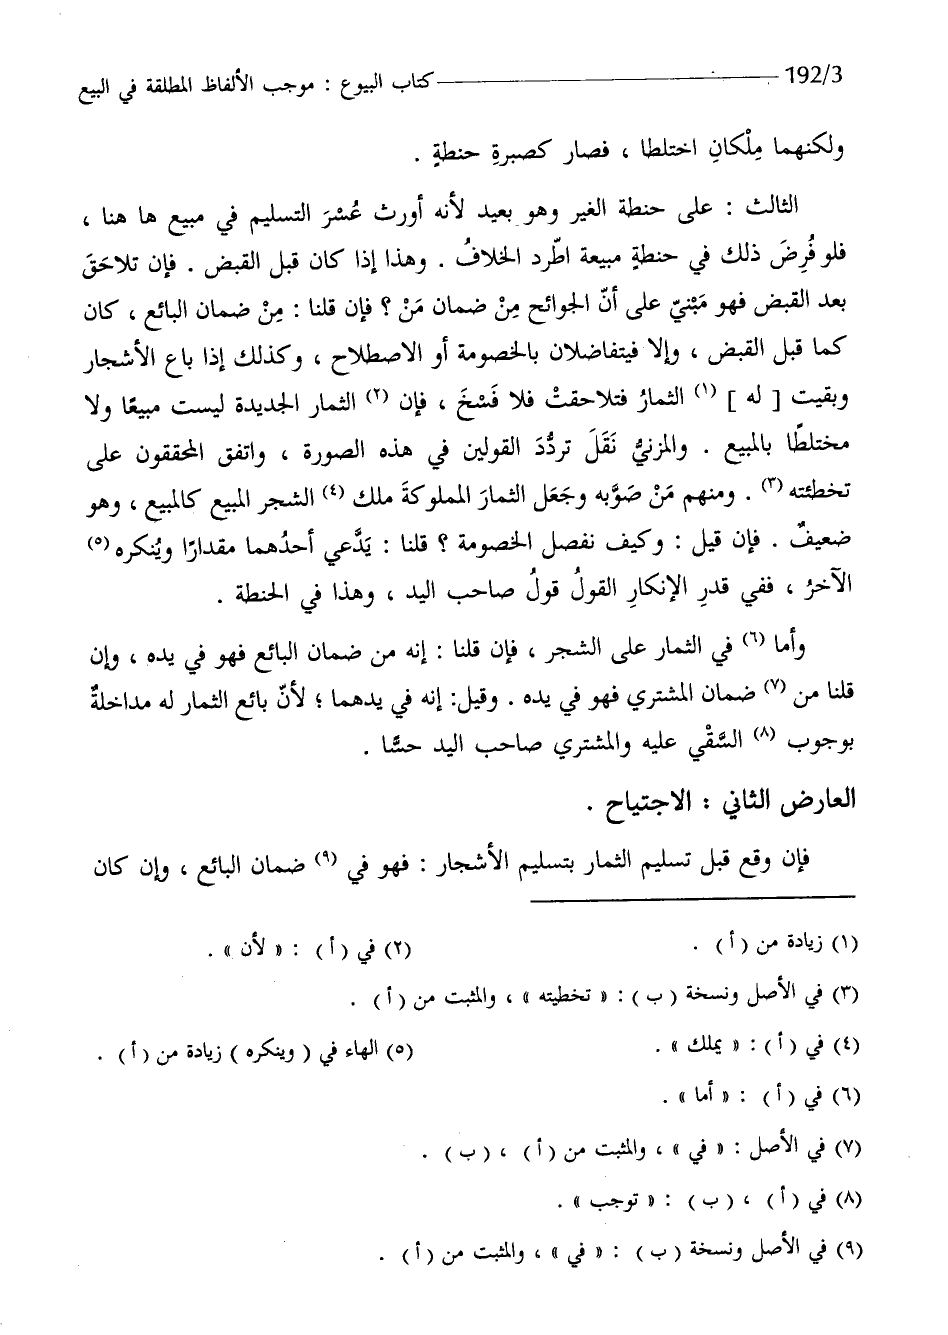 192/3 كتاب البيوع : موجب الألفاظ المطلقة في البيع
ولكنهما مِلْكانِ اختلطا ، فصار كصبرةِ حنطةٍ .
الثالث : على حنطة الغير وهو بعيد لأنه أورث عُسْرَ التسليم في مبيع ها هنا ،
فلو فُرِضَ ذلك في حنطةٍ مبيعة اطّرد الخلافُ . وهذا إذا كان قبل القبض . فإن تلاحَقَ
بعد القبض فهو مَبْنيّ على أنّ الجوائح مِنْ ضمان مَنْ ؟ فإن قلنا : مِنْ ضمان البائع ، كان
كما قبل القبض ، وإلا فيتفاضلان بالخصومة أو الاصطلاح ، وكذلك إذا باع الأشجار
وبقيت [ له ] (١) الثمارُ فتلاحقتْ فلا فَسْخَ ، فإن (٢) الثمار الجديدة ليست مبيعًا ولا
مختلطًا بالمبيع . والمزنيُّ نَقَلَ تردُّدَ القولين في هذه الصورة ، واتفق المحققون على
تخطئته (٣) . ومنهم مَنْ صَوَّبه وجَعَل الثمارَ المملوكةَ ملك (٤) الشجر المبيع كالمبيع ، وهو
ضعيفٌ . فإن قيل : وكيف نفصل الخصومة ؟ قلنا : يَدَّعي أحدُهما مقدارًا ويُنكره (٥)
الآخرُ ، ففي قدرِ الإنكارِ القولُ قولُ صاحب اليد ، وهذا في الحنطة .
وأما (٦) في الثمار على الشجر ، فإن قلنا : إنه من ضمان البائع فهو في يده ، وإن
قلنا من (٧) ضمان المشتري فهو في يده . وقيل: إنه في يدهما ؛ لأنّ بائع الثمار له مداخلةٌ
بوجوب (٨) السَّقْي عليه والمشتري صاحب اليد حسًّا .
العارض الثاني : الاجتياح .
فإن وقع قبل تسليم الثمار بتسليم الأشجار : فهو في (٩) ضمان البائع ، وإن كان
(١) زيادة من ( أ ) . (٢) في ( أ ) : « لأن » .
(٣) في الأصل ونسخة ( ب ) : « تخطيته » ، والمثبت من ( أ ) .
(٤) في ( أ ) : « يملك » . (٥) الهاء في ( وينكره ) زيادة من ( أ ) .
(٦) في ( أ ) : « أما » .
(٧) في الأصل : « في » ، والمثبت من ( أ ) ، ( ب ) .
(٨) في ( أ ) ، ( ب ) : « توجب » .
(٩) في الأصل ونسخة ( ب ) : « في » ، والمثبت من ( أ ) .